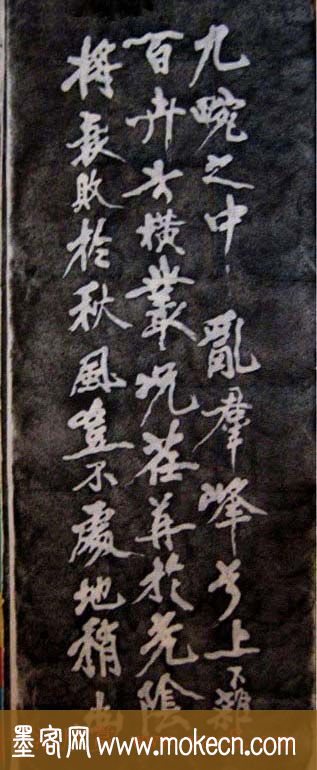 九畹之中亂羣峰兮上下雜
百卉兮橫叢況荏苒於光陰
將衰敗於秋風豈不處地稍
墨客网 www.mokecn.com